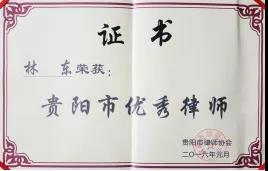 证书
林东荣获:
贵阳市优秀律师
贵阳市律师协会
二〇一六年元月